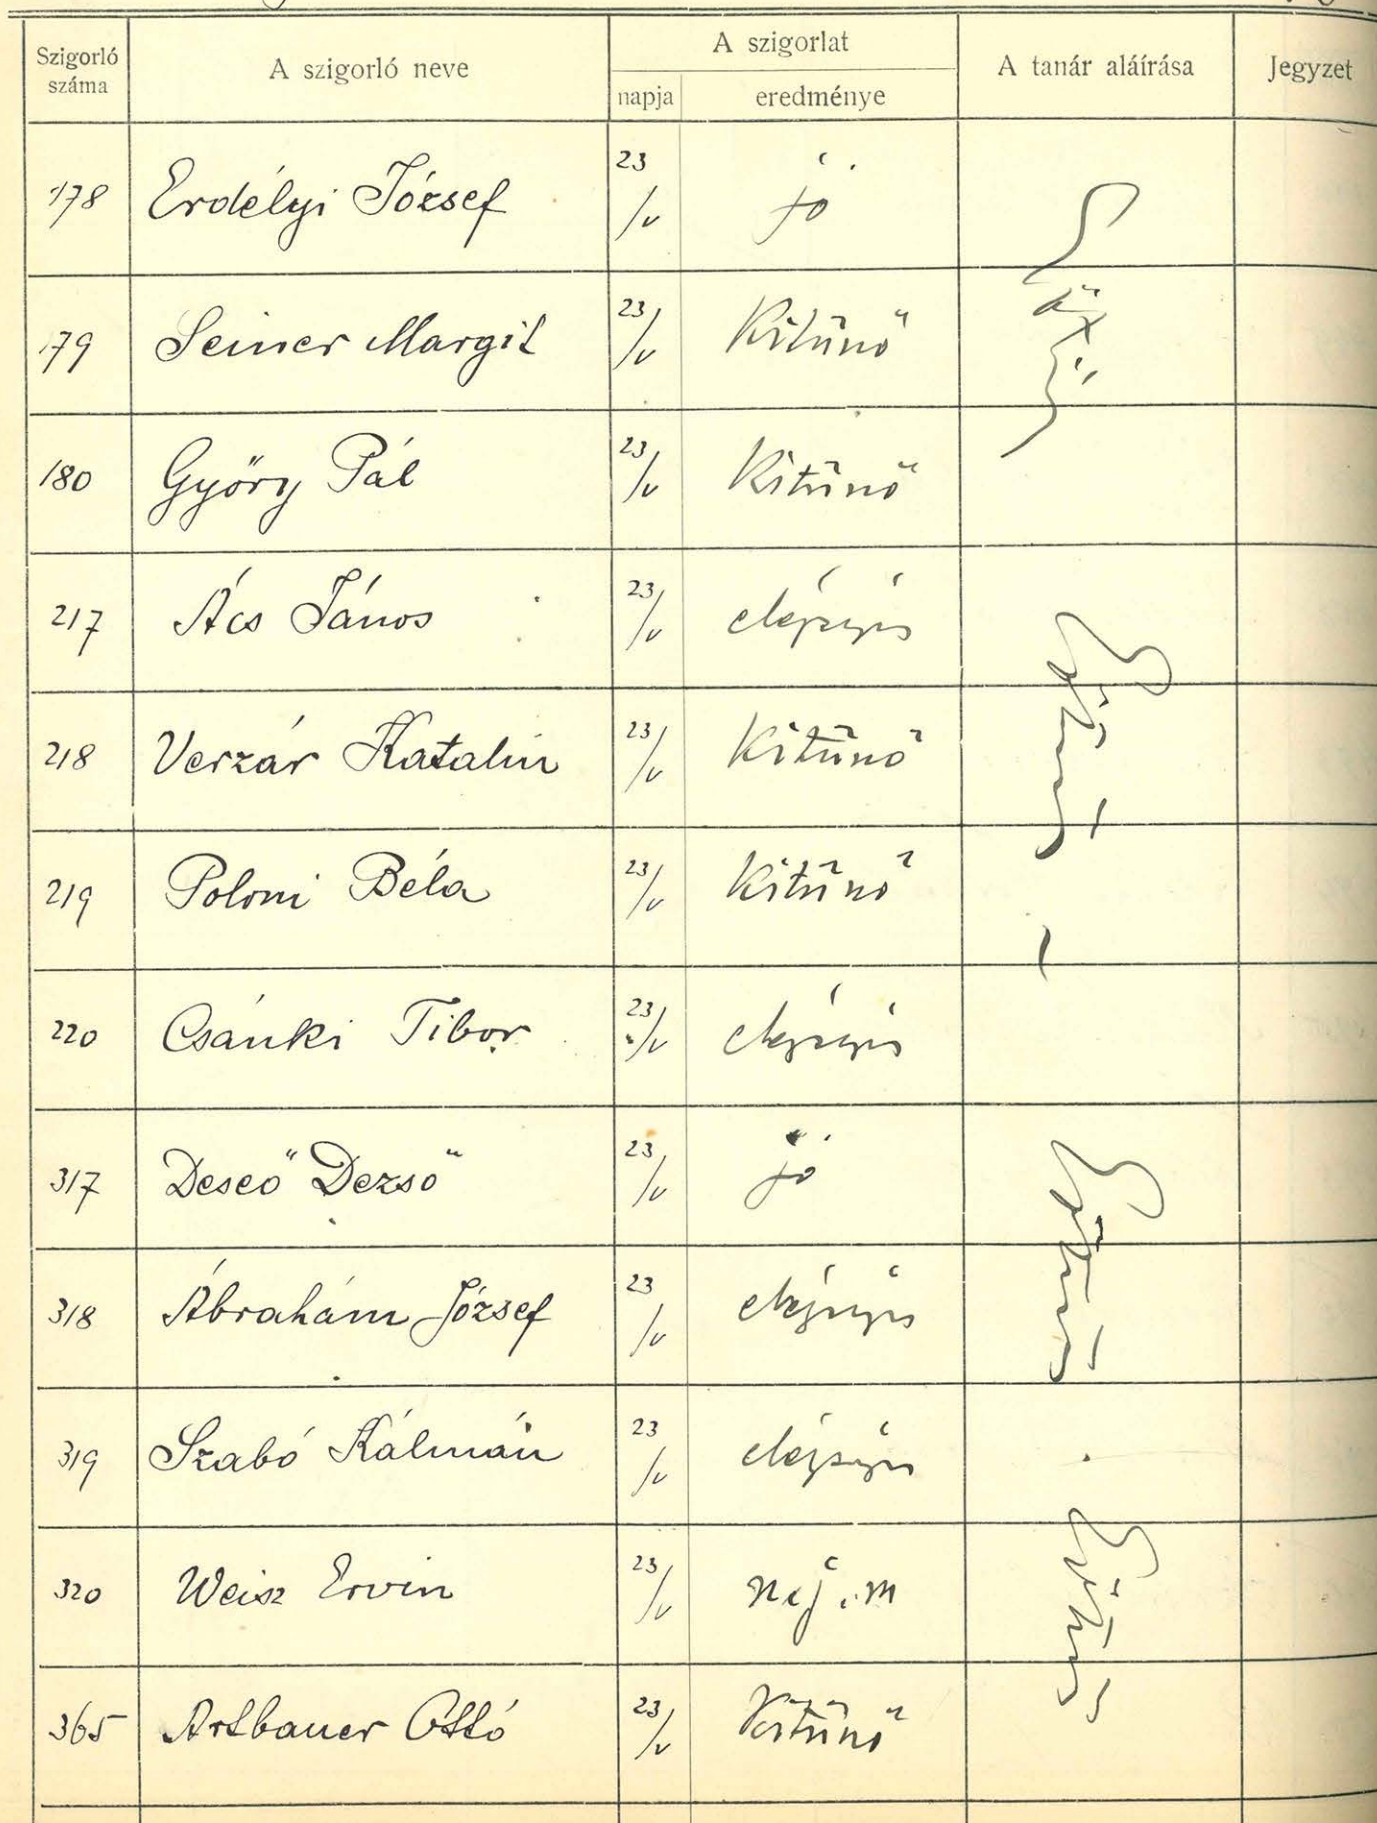 Szigorló száma A szigorló neve A szigorlat napja eredménye A tanár aláírása Jegyzet
178 Erdélyi József 23/V jó
179 Seiner Margit 23/V Kitűnő
180 Győry Pál 23/V Kitűnő
217 Ács János 23/V elégséges
218 Verzár Katalin 23/V Kitűnő
219 Poloni Béla 23/V Kitűnő
220 Csánki Tibor 23/V elégséges
317 Deseő Dezső 23/V jó
318 Ábrahám József 23/V elégséges
319 Szabó Kálmán 23/V elégséges
320 Weisz Ervin 23/V
365 Artbauer Ottó 23/V Kitűnő